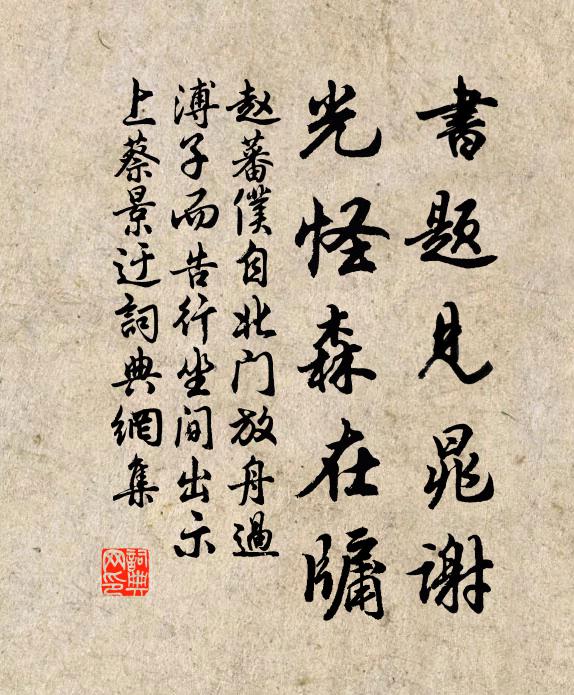 書题見晁谢
光怪森在牖
赵蕃僕自北门放舟過
溥子而告行坐间出示
上蔡景迂詞典網集
詞典网印